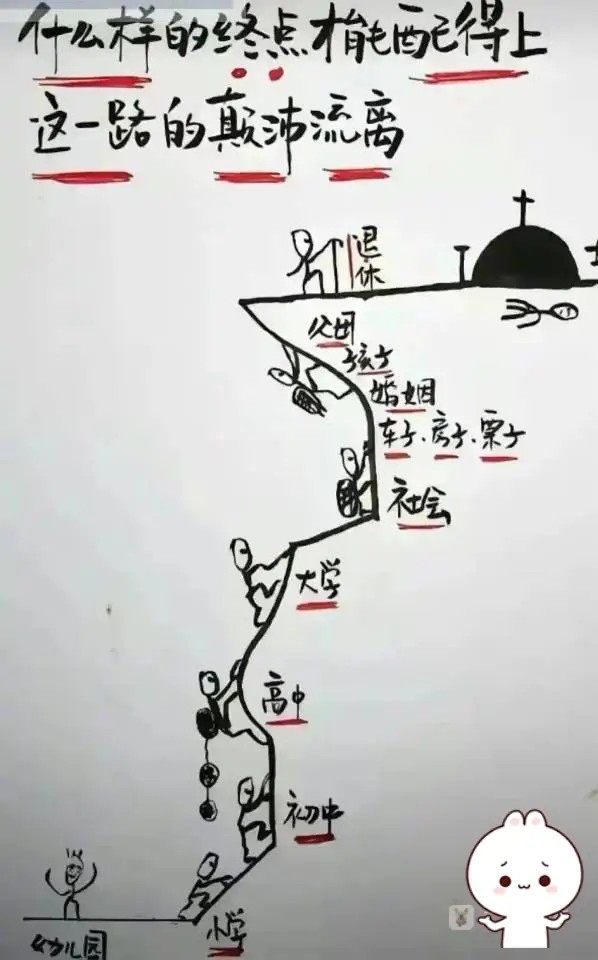 什么样的终点才能配得上
这一路的颠沛流离
退休
父母
孩子
婚姻
车子、房子、票子
社会
大学
高中
初中
小学
幼儿园